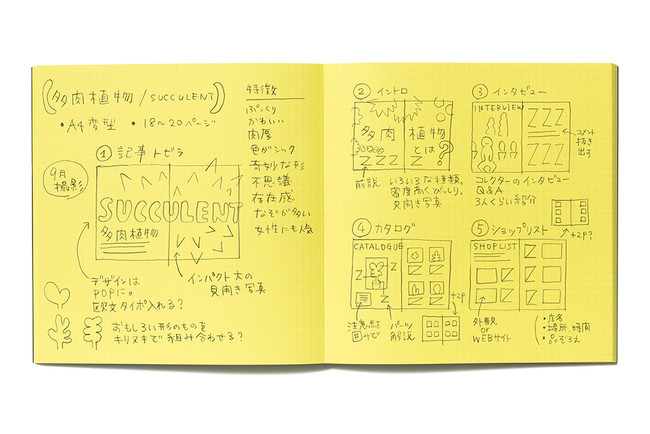 多肉植物/SUCCULENT
・A4変型 ・18〜20ページ
9月
撮影
① 記事トビラ
SUCCULENT
多肉植物
デザインは
POPに。
欧文タイポ入れる?
インパクト大の
見開き写真
おもしろい形のものを
キリヌキで組み合わせる?
特徴
ぷっくり
かわいい
肉厚
色がシック
奇妙な形
不思議
存在感
なぞが多い
女性にも人気
② イントロ
多肉植物
とは?
ZZZ Z
前説
いろいろな種類。
密度高くびっしり。
見開き写真
③ インタビュー
INTERVIEW
ZZZ
ZZZ
コメント
抜き
出す
コレクターのインタビュー
Q&A
3人くらい紹介
+2p?
④ カタログ
CATALOGUE
Z
Z
Z Z
Z Z
+2p
注意点を
囲みで
パーツ
解説
⑤ ショップリスト
SHOPLIST
Z
Z
外観
or
WEBサイト
・店名
・場所、時間
・品ぞろえ